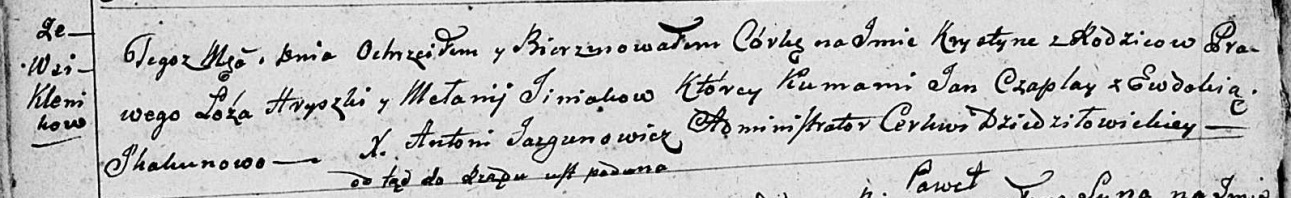 Ze
Wsi
Kleni
kow
Tegoz Mṣa. Dnia Ochrzciłem y Bierzmowałem Córkę na Imie Krystynę z Rodzicow Pra-
wego Łoża Hryszki y Metanij Siniakow Którey Kumami Jan Czaplay z Ewdokią.
Skakunowo — X. Antoni Jazgunowicz Administrator Cerkwi Dziedziłowickiey —
od tąd do Rządu
Paweł
Syna na Imie